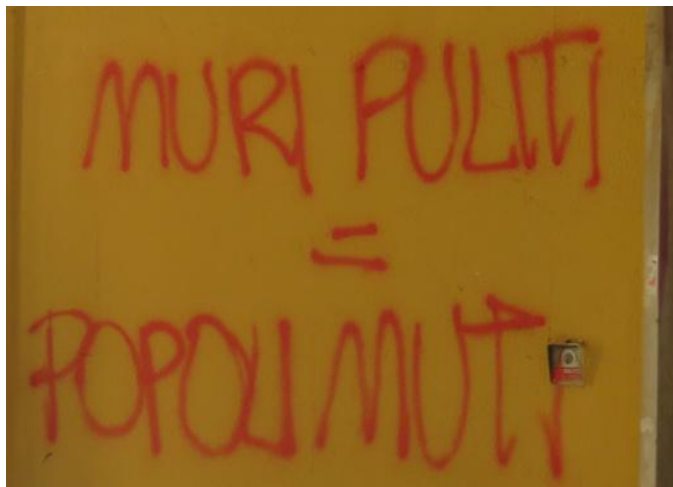 MURI PULITI
=
POPOLI MUTI